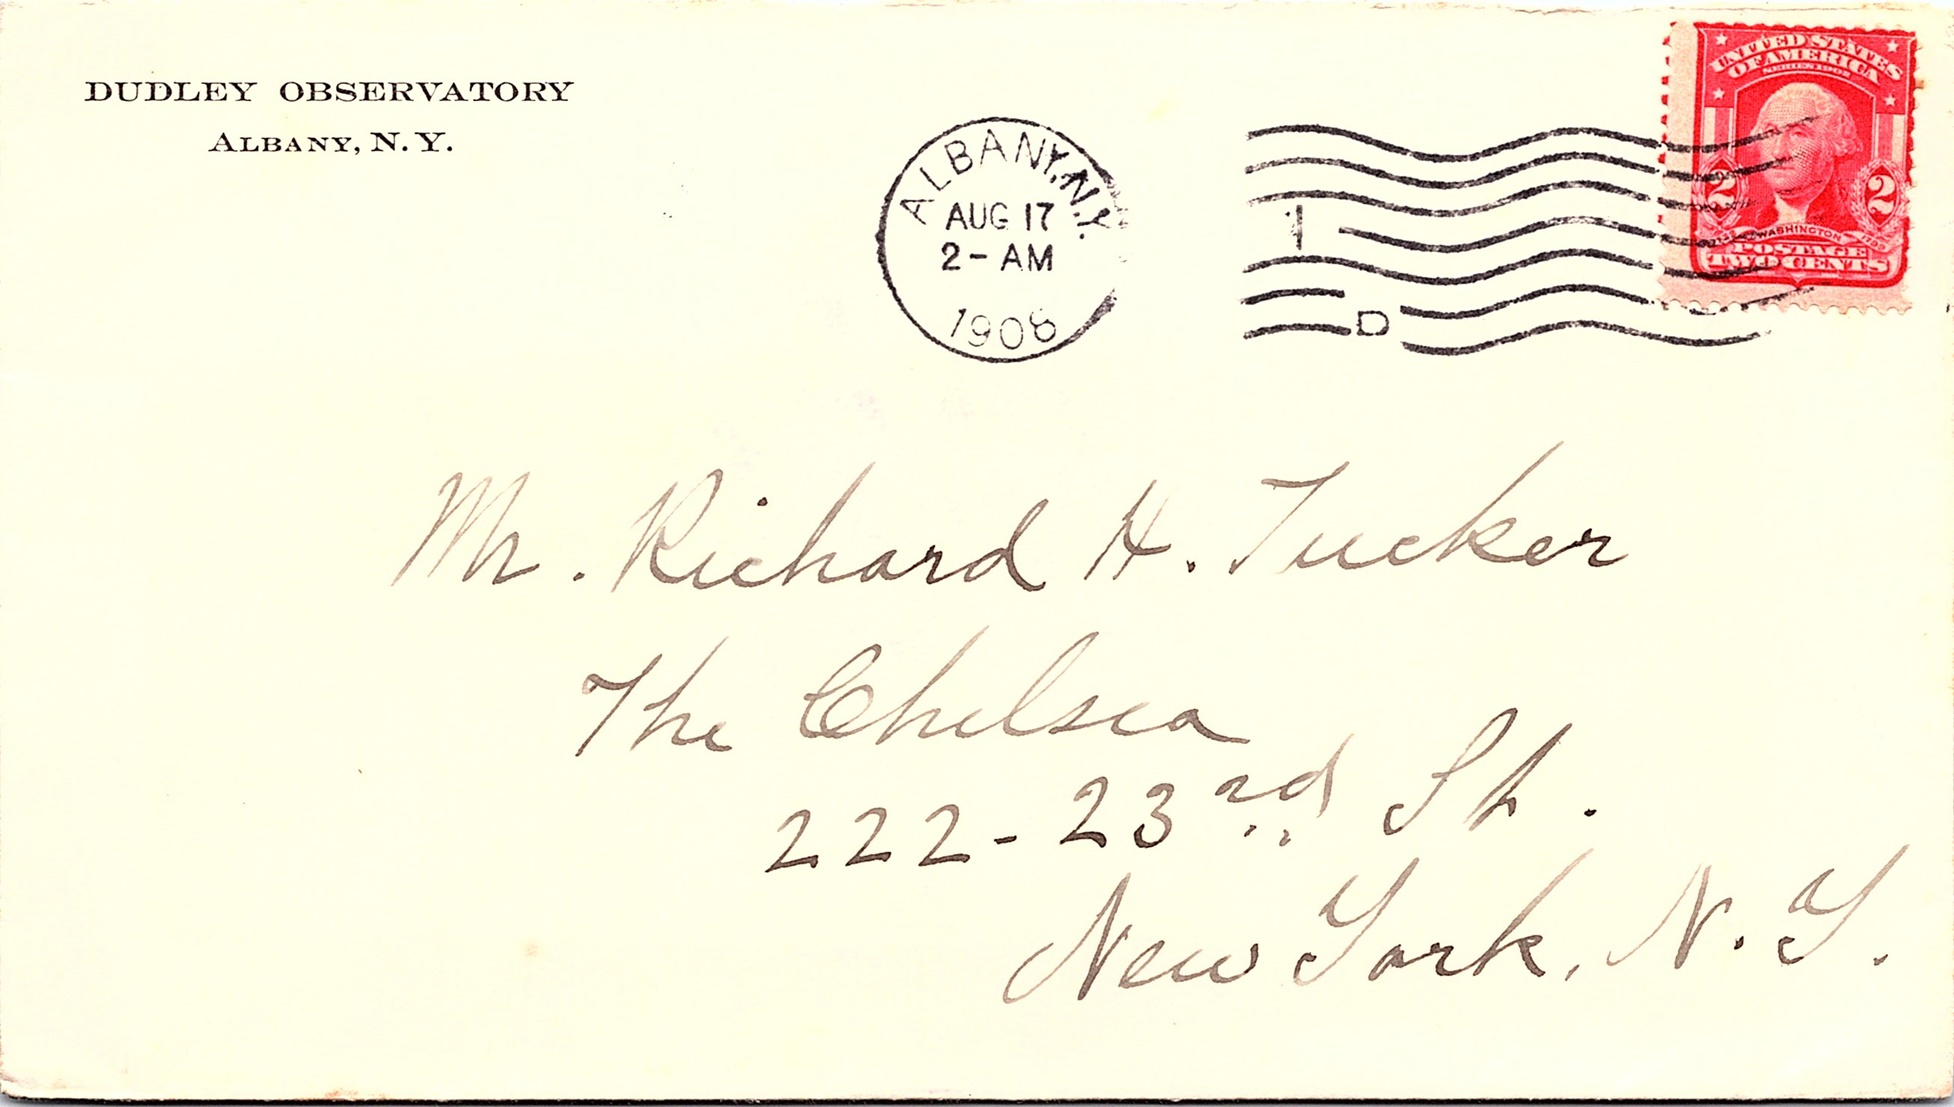 DUDLEY OBSERVATORY
ALBANY, N. Y.
ALBANY, N.Y.
AUG 17
2 - AM
1908
1
D
UNITED STATES
OF AMERICA
SERIES 1902
2 2
WASHINGTON 1799
POSTAGE
TWO CENTS
Mr. Richard H. Tucker
The Chelsea
222 - 23rd St.
New York, N. Y.